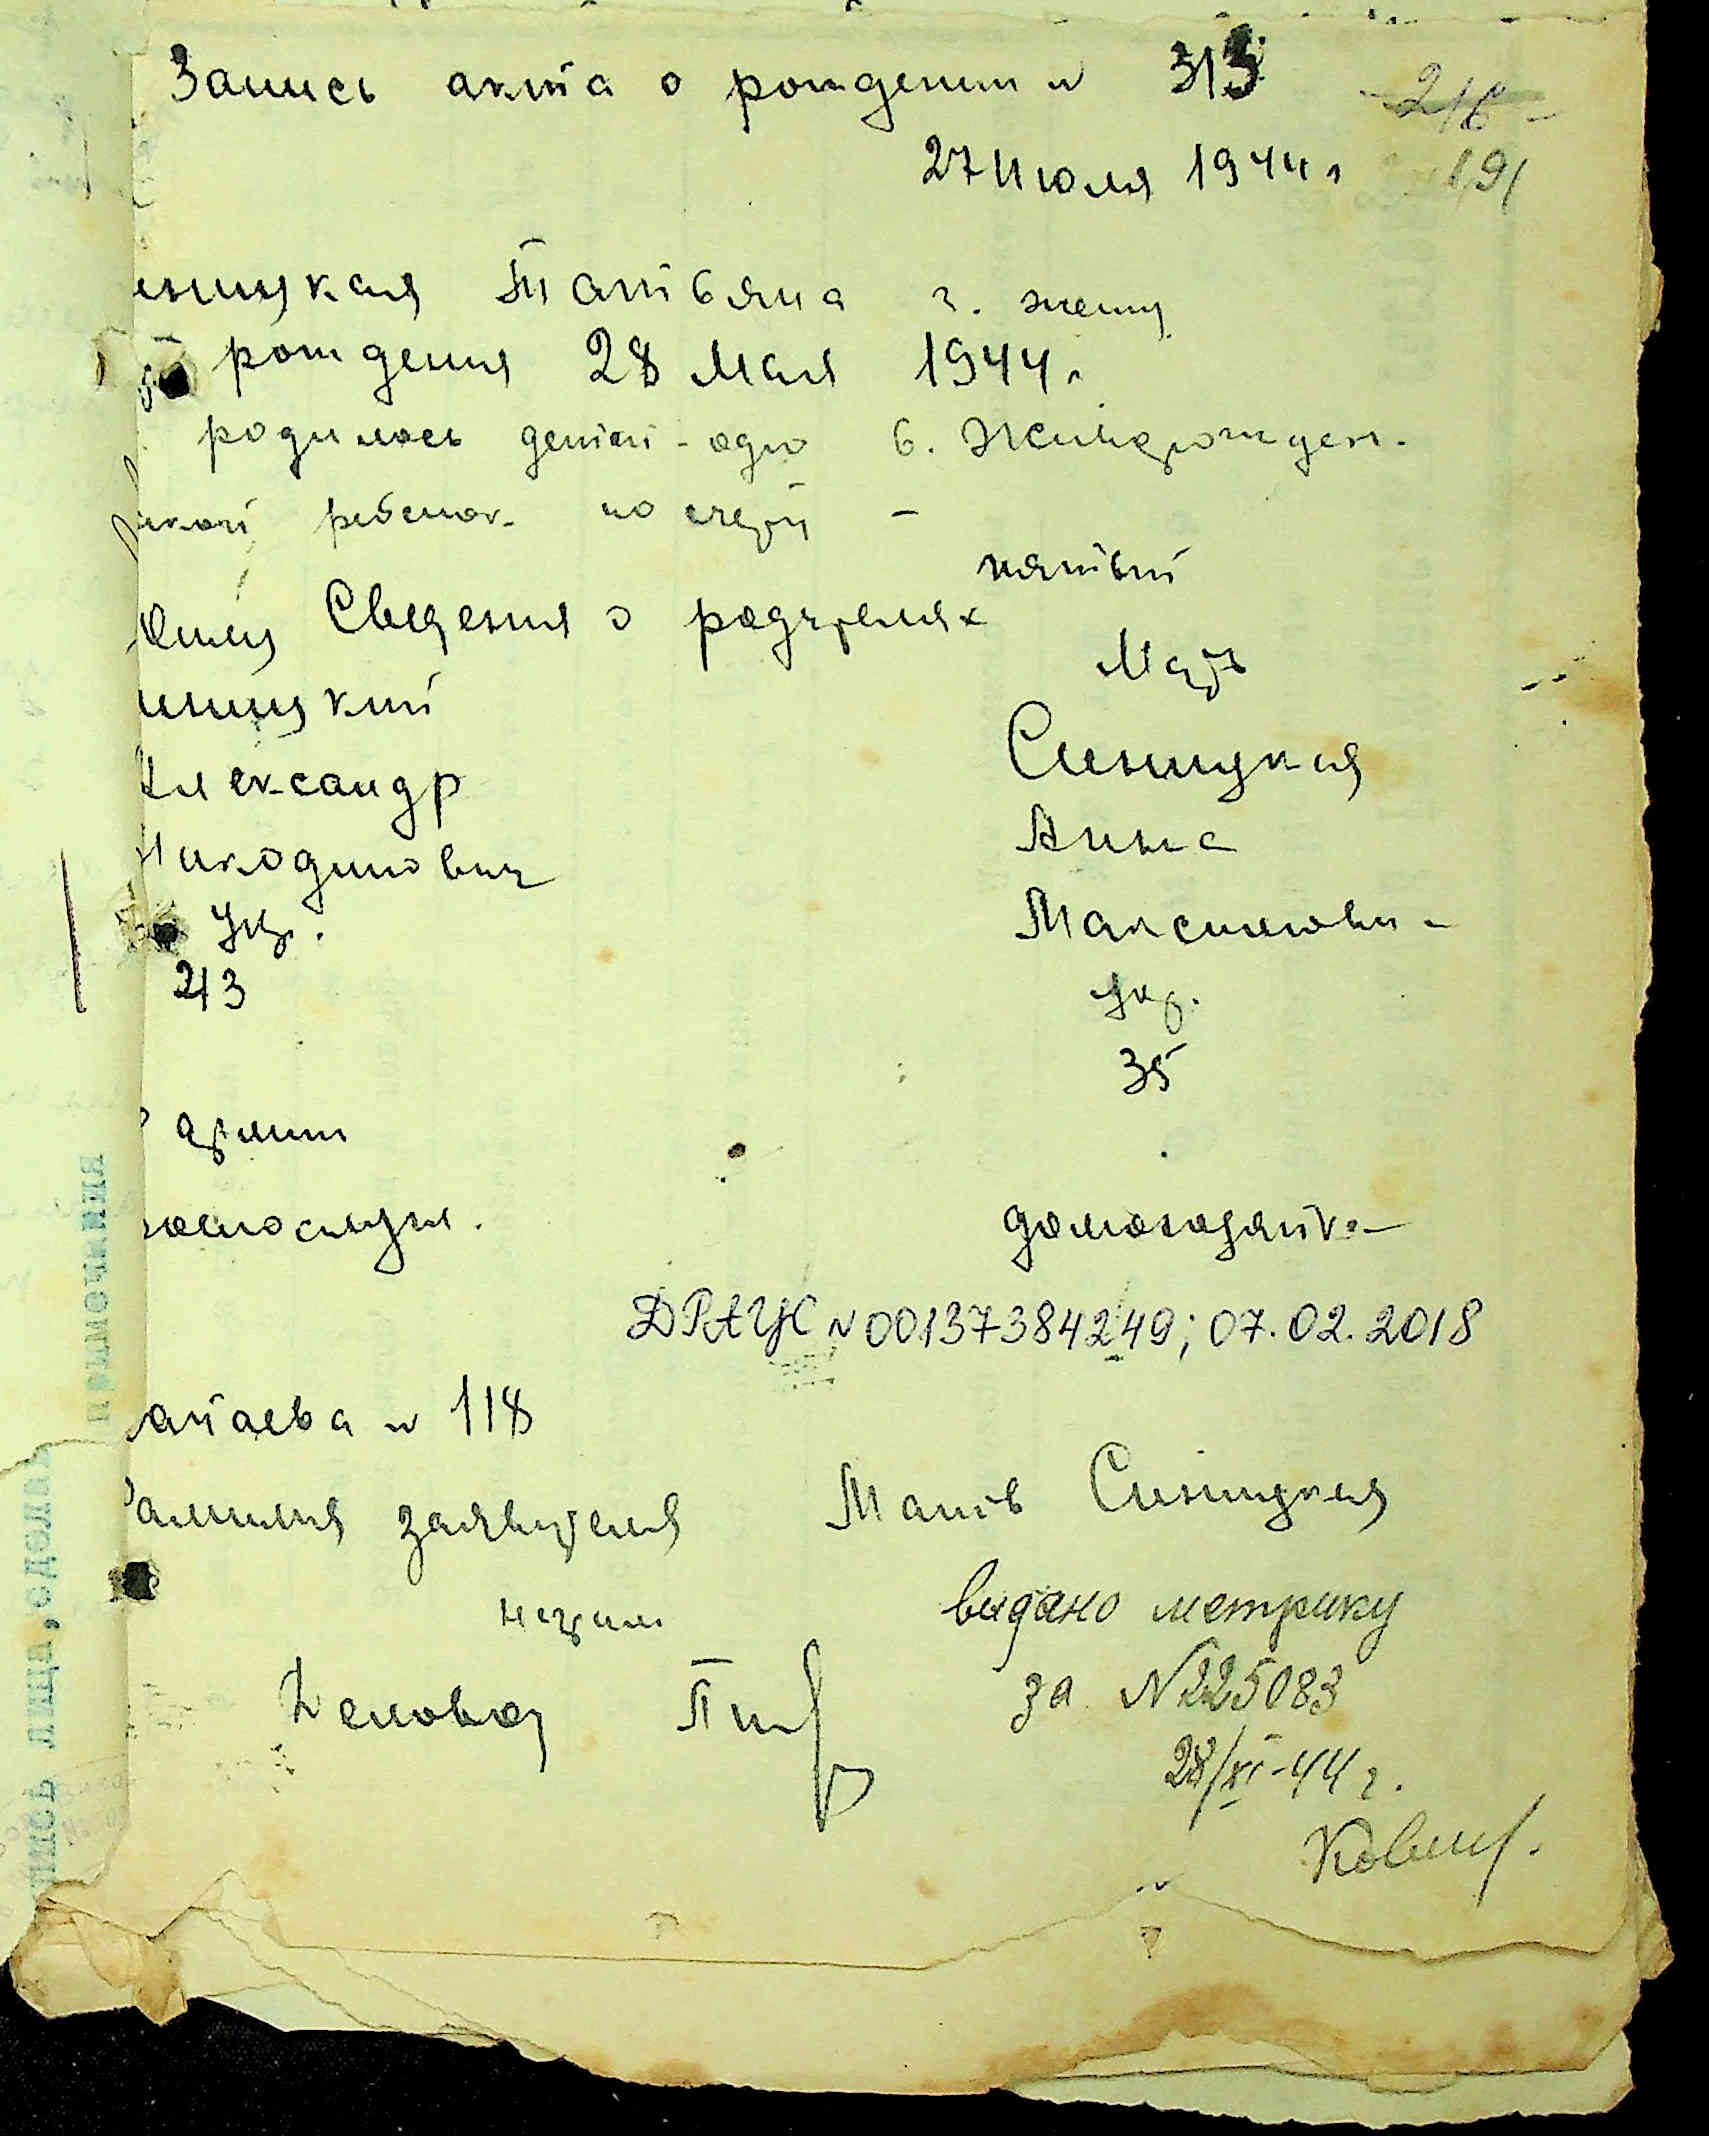 Запись акта о рождении № 313
216
27 Июля 1944 г 191
иницкая Татьяна г. женщ
рождения 28 мая 1944 г
родилось детей - одно 6. Живорожден.
який ребенок по счету -
пятый
Сведения о родителях
Мать
иницкий
Синицкая
Александр
Анна
Никодимович
Максимовн
Укр.
укр.
43
35
армии
военнослуж.
домохозяйка
ДРАЦС № 00137384249; 07.02.2018
№ 118
Фамилия заявителя Мать Синицкая
видано метрику
за № 225083
28/XI-44 г.